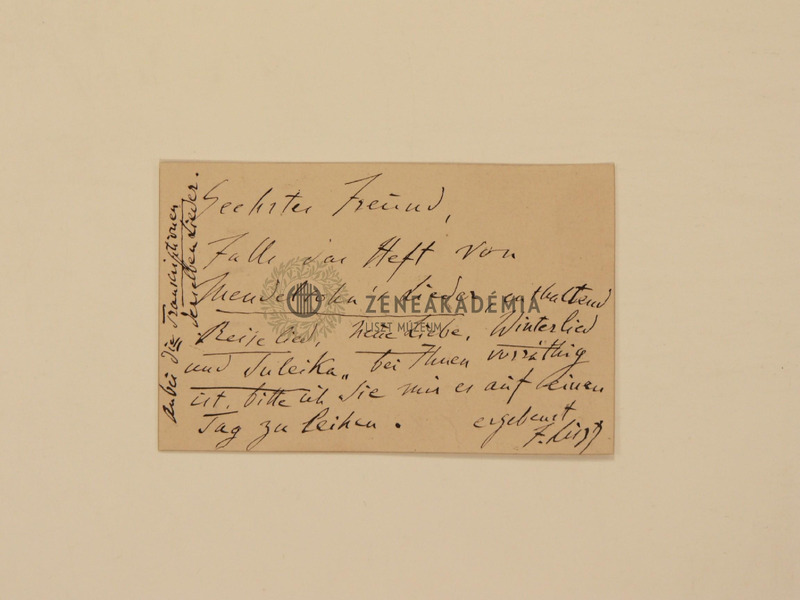 Geehrter Freund,
Falls das Heft von
Mendelsohn's Lieder, enthaltend
Reiselied, neue Liebe, Winterlied
und Suleika„ bei Ihnen vorräthig
ist, bitte ich Sie mir es auf einen
Tag zu leihen.
ergebenst
F. Liszt
anbei die Transcriptionen
derselben Lieder.
ZENEAKADÉMIA
LISZT MÚZEUM